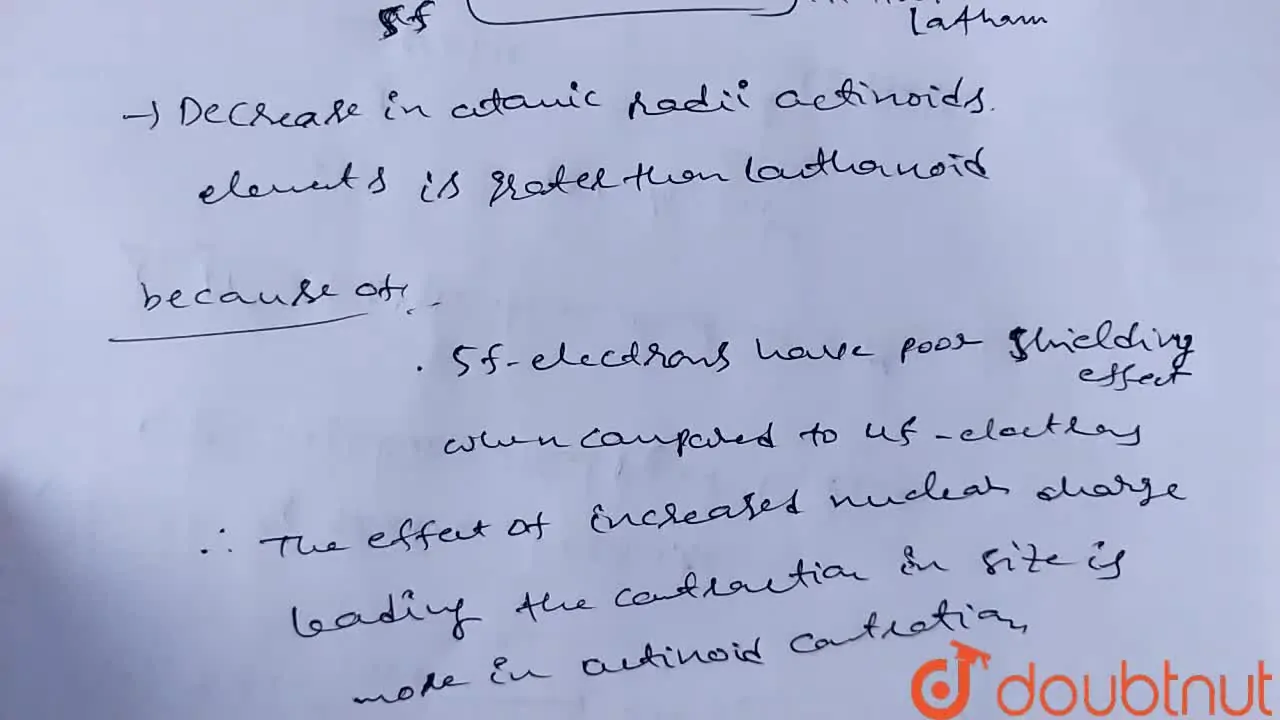 5f
Latham
→ Decrease in atomic radii actinoids.
elements is grater than lanthanoid
because of..
. 5f-electrons have poor shielding
effect
when compared to 4f-electrons
∴ The effect of increased nuclear charge
leading the contraction in size is
more in actinoid contration,
doubtnut